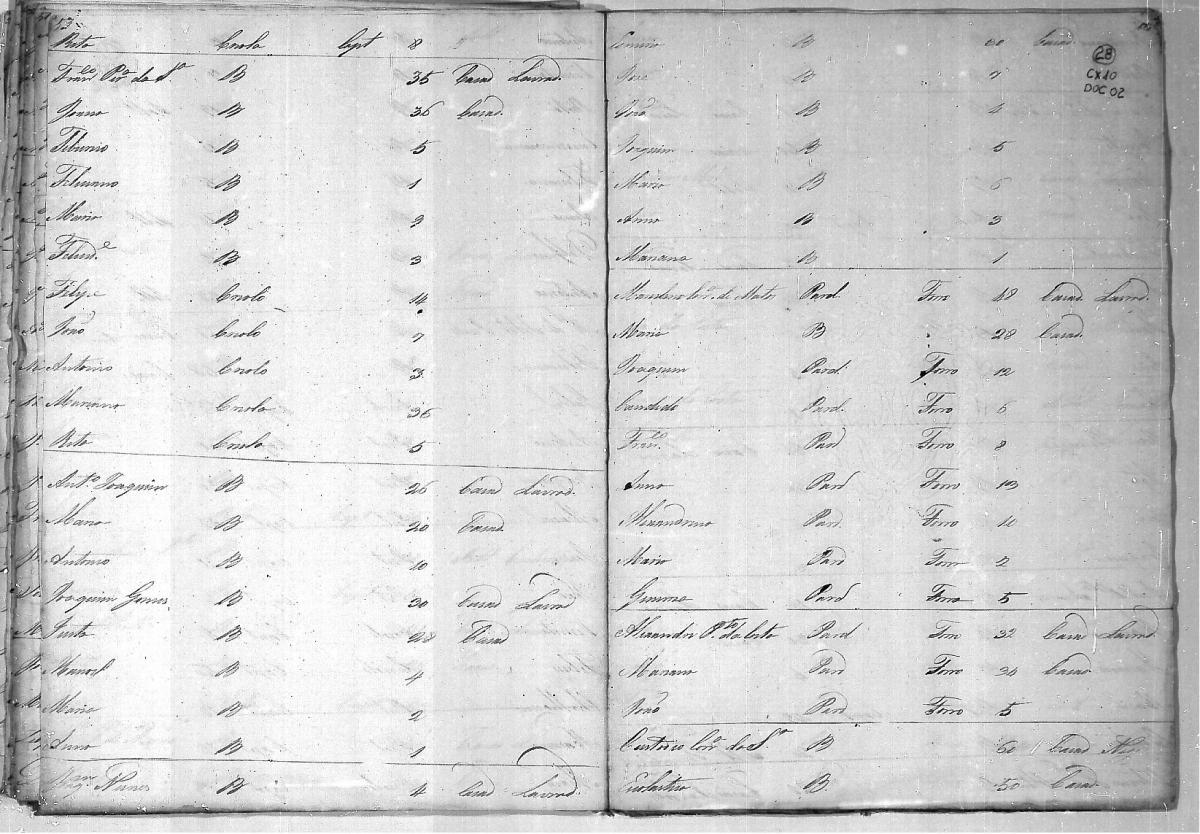 Rita Criolo Capt 8
Fran.co Per.a da S.a B 35 Casad Lavrad.
Joana B 36 Casad.
Tiburcio B 5
Feliciano B 1
Maria B 9
Felicid.e B 3
Felipe Criolo 14
João Criolo 7
Antonio Criolo 3
Mariana Criolo 36
Rita Criolo 5
Ant.o Joaquim B 26 Casad Lavrad.
Maria B 20 Casad.
Antonio B 10
Joaquim Gomes B 30 Casad Lavrad
Justa B 28 Casad
Manoel B 4
Maria B 2
Anna B 1
Nunes B 4 Casad Lavrad.
B 30 Casad
José B 7
João B 4
Joaquim B 5
Maria B 6
Anna B 3
Mariana B 1
de Matos Pard. Forr 48 Casad Lavrad.
Maria B 28 Casad.
Joaquim Pard. Forro 12
Candido Pard. Forro 6
Fran.co Pard Forro 8
Anna Pard Forro 13
Alexandrina Pard. Forro 10
Maria Pard Forro 2
Pard Forro 5
Alexandre P.to da Costa Pard Forro 32 Casad Lavrad.
Mariana Pard Forro 34 Casad
João Pard Forro 5
Custodio da S.a B 60 Casad Neg.
Escolastica B 50 Casad.
28
CX10
DOC 02